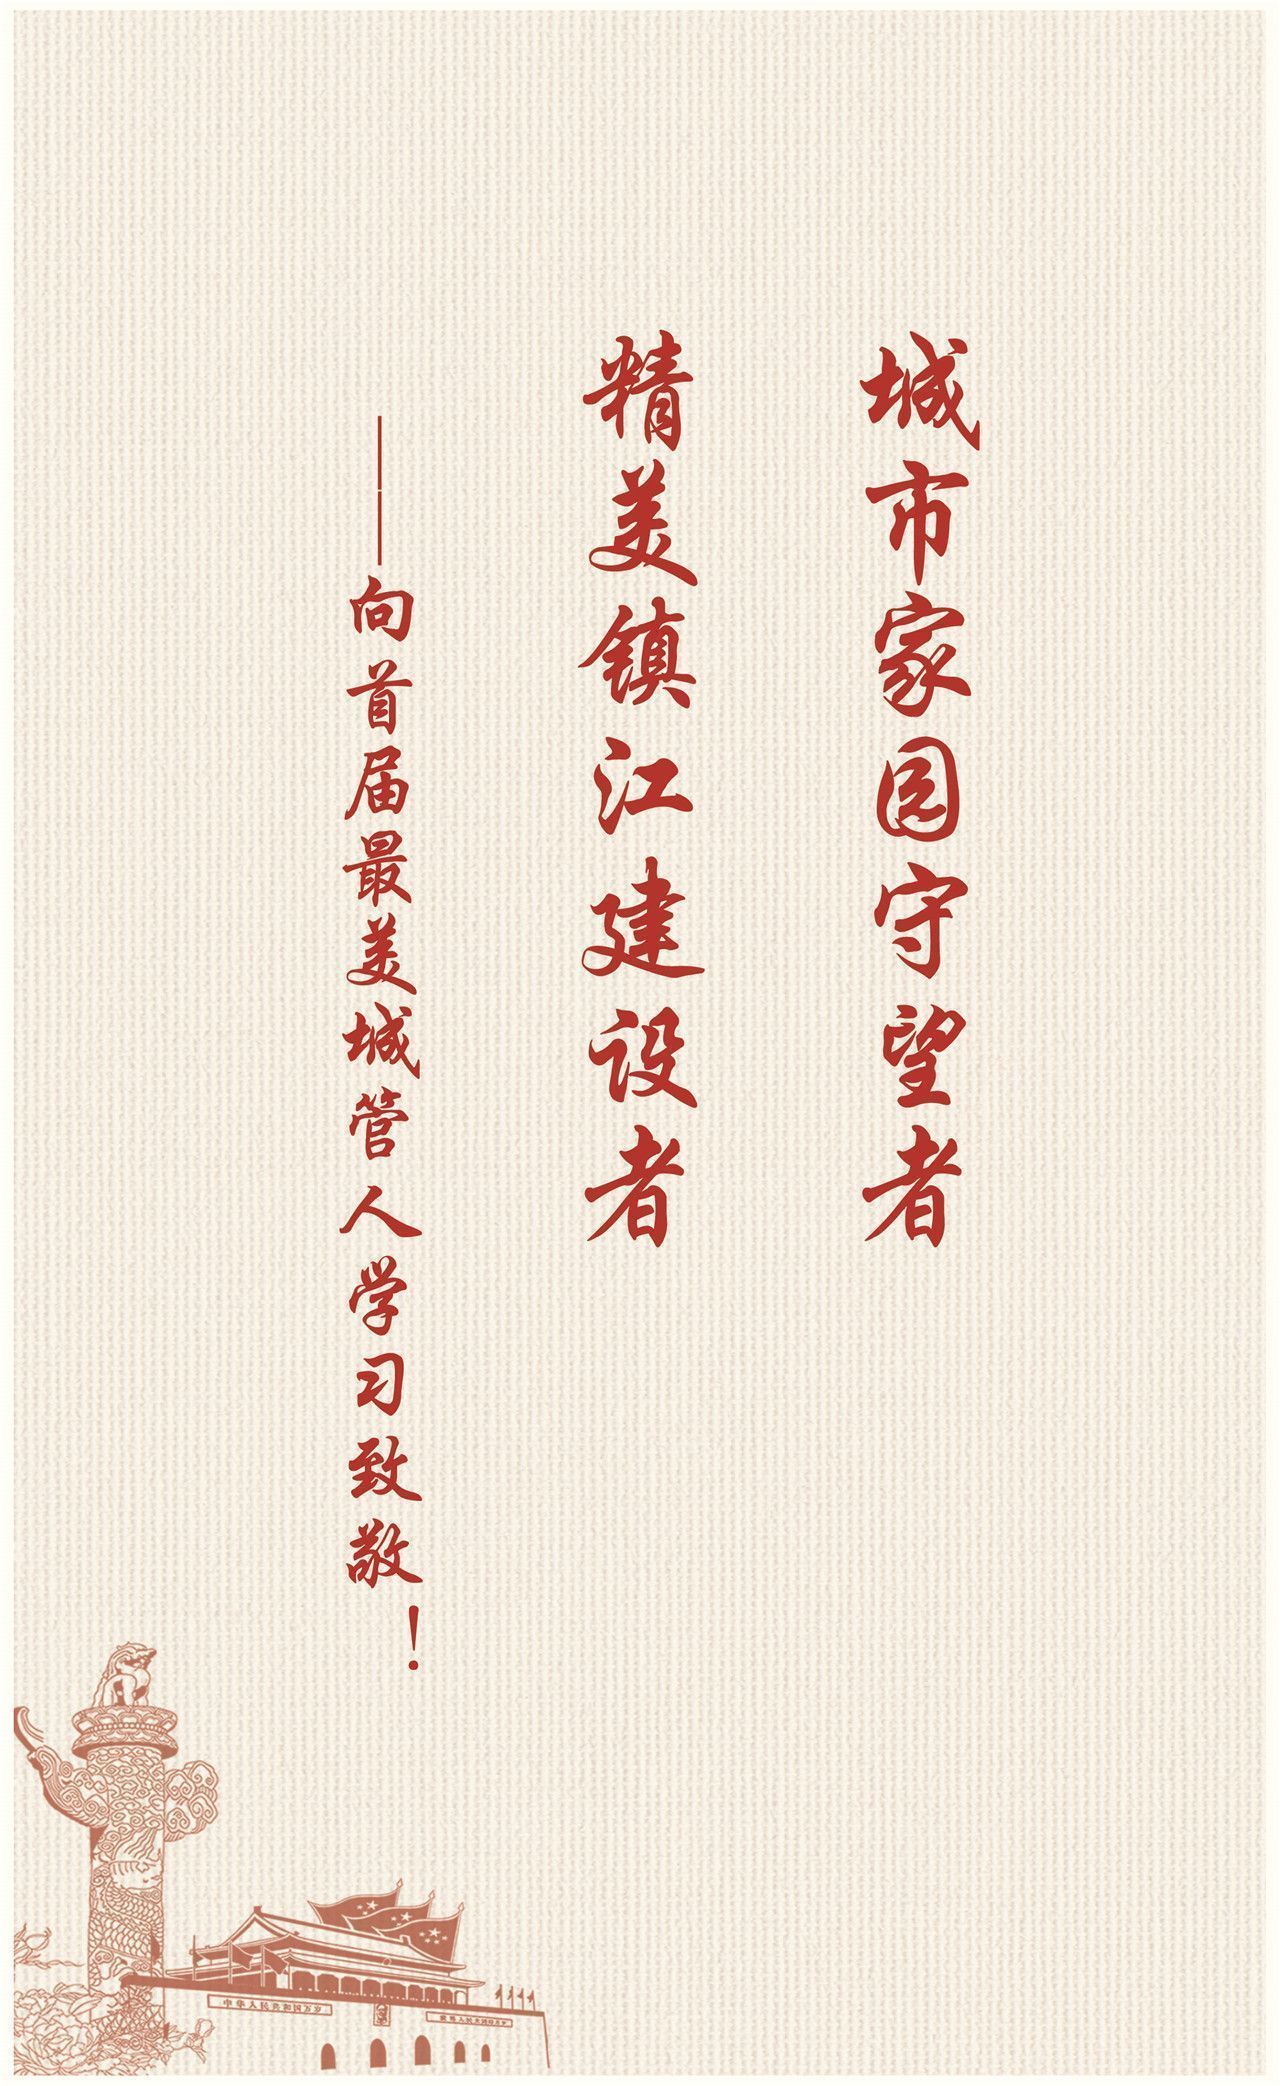 城市家园守望者
精美镇江建设者
——向首届最美城管人学习致敬！
中华人民共和国万岁
世界人民大团结万岁